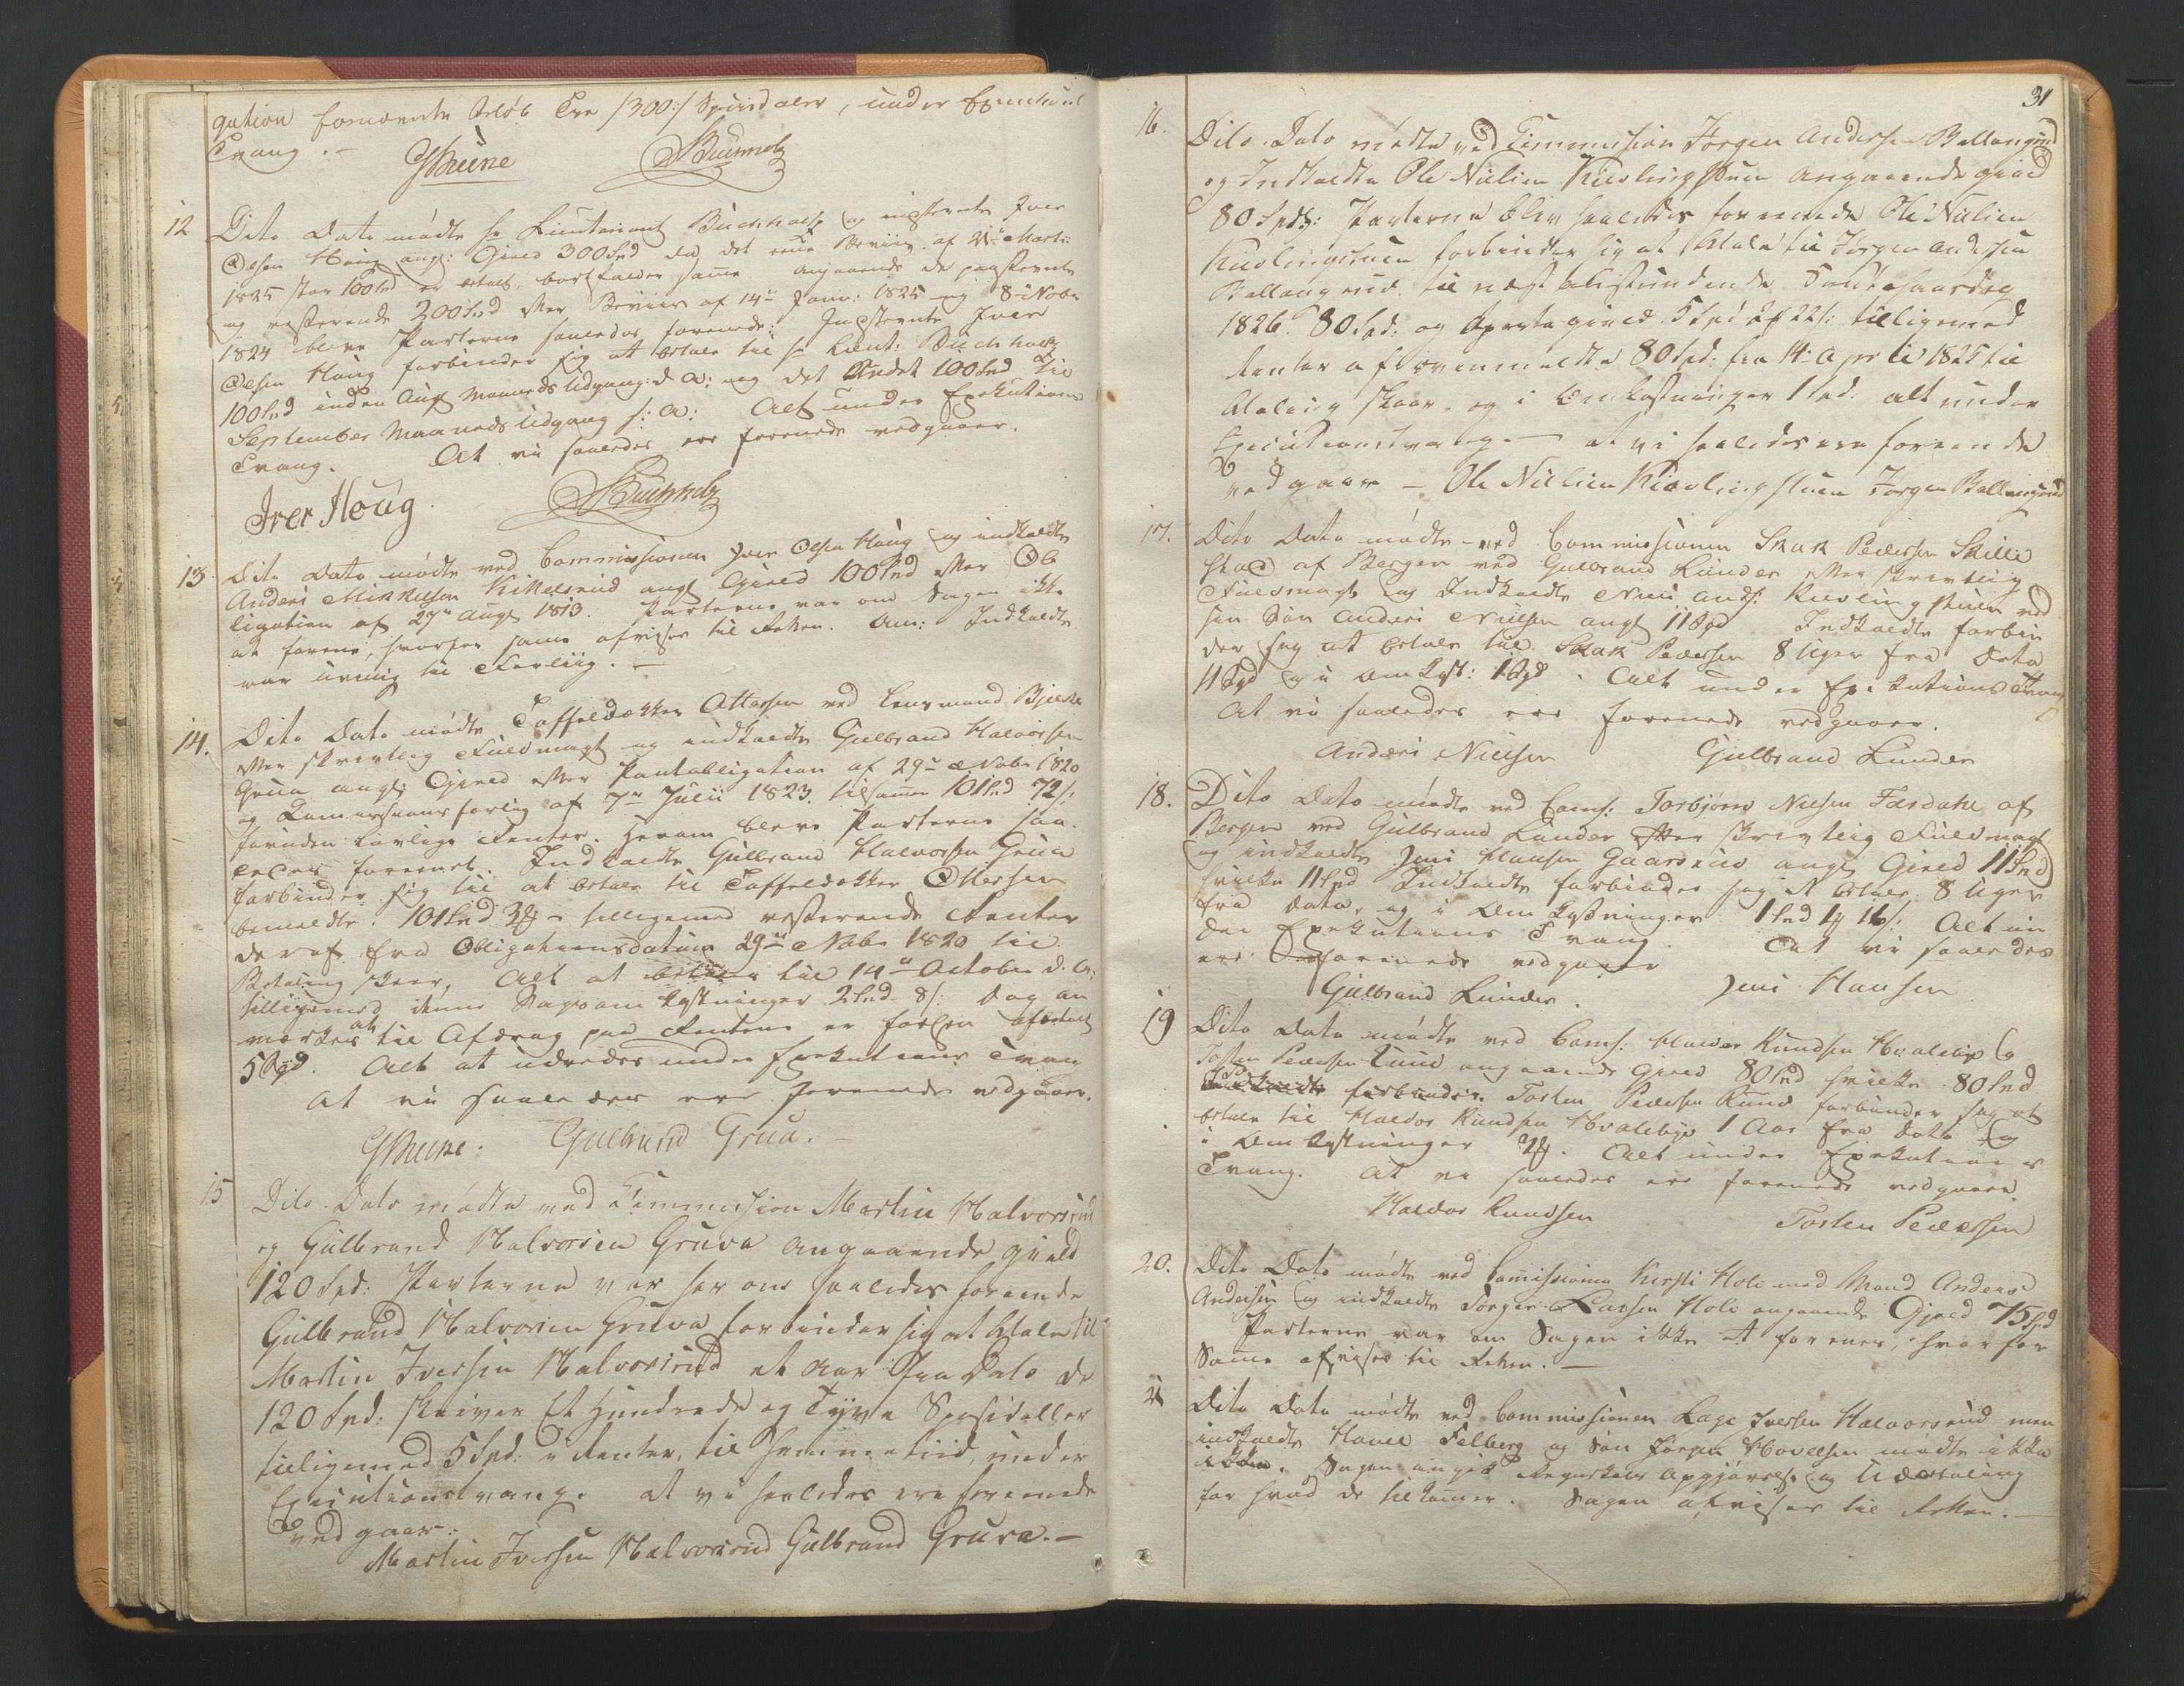 gation fornævnte Beløb Tre /300:/ Speciedaler, under Execution
Tvang.-
GBrune SBuchholz
12 Dito Dato mødte Hr Lieutenant Buchholz og indstevnte Iver
Olsen Houg angl: Gield 300 Spd da det ene Beviis af 21de Marti
1825 stor 100 Spd er betalt, bortfalder samme angaaende de paastevnte
og resterende 200 Spd efter Beviis af 14de Janv: 1825 og 8de Nobr
1824 bleve Parterne saaledes forenede: Indstevnte Iver
Olsen Houg forbinder sig at betale til Hr Lieut: Buchholz
100 Spd inden Aug Maaneds Udgang d: A: og det Andet 100 Spd til
September Maaneds Udgang s: A: Alt under Exekutions
Tvang. At vi saaledes ere forenede vedgaaer.
Iver Houg SBuchholz
13 Dito Dato mødte ved Commissionen Iver Olsen Houg og indkaldte
Anders Mikkelsen Kikelsrud angl Gield 100 Spd efter Ob
ligation af 29de Augt 1813. Parterne var om Sagen ikke
at forene, hvorfor samme afvises til Retten. Anm: Indkaldte
var uvillig til Forliig.-
14. Dito Dato mødte Taffeldækker Ottersen ved Lensmand
efter skrivtlig Fuldmagt og indkaldte Gulbrand Halvorsen
Grua angl: Gjeld efter Pantobligation af 29de Nobr 1820
og Commissionsforlig af 7de Julii 1823. tilsammen 101 Spd 72 s:
foruden lovlige Renter. Herom bleve Parterne saa-
ledes forenet. Indkaldte Gulbrand Halvorsen Grua
forbinder sig til at betale til Taffeldækker Ottersen
bemeldte 101 Spd 3 tilligemed resterende Renter
deraf fra Obligationsdatum 29de Nobr 1820 til
Betaling skeer, Alt at betale til 14de October d. A:
tilligemed denne Sags omkostninger 2 Spd 8 s: dog an
mærkes at til Afdrag paa Renterne er forhen afbetalt
5 Spd. Alt at udredes under Exekutions Tvang
At vi saaledes ere forenede vedgaaer.
GBrune: Gulbrand Grua.-
15 Dito Dato mødte ved Commission Martin Halvorsrud
og Gulbrand Halvorsen Gruva angaaende gield
120 Spd: Parterne var her om saaledes forende
Gulbrand Halvorsen Gruva forbinder sig at betale til
Martin Iversen Halvorsrud et Aar fra Dato de
120 Spd: skriver Et Hundrede og Tyve Spesidaller
tilligemed 5 Spd: i Renter, til samme tiid, under
Executionstvang. at vi saaledes ere forenede
vedgaar.
Martin Iversen Halvorsrud Gulbrand Gruva.-
31
16. Dito Dato mødte ved Commission Jørgen Andersen Ballangrud
og Indkaldte Ole Nielsen Kiørlingstuen angaaende gield
80 Spd: Parterne blev saaledes forenede Ole Nielsen
Kiørlingstuen forbinder sig at betale til Jørgen Andersen
Ballangrud til næst tilstundende
1826. 80 Spd: og Aparte gield 5 Spd 2 22 s: tilligemed
Renter af ovenmeldte 80 Spd: fra 14 April 1825 til
Betaling skeer. og i Omkostninger 1 Spd: alt under
Executionstvang.- at vi saaledes ere forende
vedgaar - Ole Nielsen Kiørlingstuen Jørgen Ballangrud
17. Dito Dato mødte ved Commissionen Skak Pedersen Skille
stad af Bergen ved Gulbrand Lunder efter skrivtlig
Fuldmagt og Indkaldte Niels Ands: Kiørlingstuen ved
sin Søn Anders Nielsen angl 11 Spd Indkaldte forbin
der sig at betale til Skak Pedersen 8 Uger fra Dato
11 Spd og i Omkost: 1 Spd. Alt under Exekutions Tvang
At vi saaledes ere forenede vedgaaer.
Anders Nielsen Gulbrand Lunder
18. Dito Dato mødte ved Coms: Torbjørn Nielsen Færdahl af
Bergen ved Gulbrand Lunder efter skrivtlig Fuldmagt
og indkaldte Jens Hansen Gaarsrud angl Gield 11 Spd
hvilke 11 Spd Indkaldte forbinder sig at betale 8 Uger
fra Dato, og i Omkostninger 1 Spd 1 16 s: Alt un
der Exekutions Tvang. At vi saaledes
ere forenede vedgaaer
Gulbrand Lunder. Jens Hansen
19 Dito Dato mødte ved Coms: Haldor Knudsen Hvaleby og
Torsten Pedersen Ruud angaaende Gjeld 80 Spd hvilke 80 Spd
Indkaldte forbinder. Torsten Pedersen Ruud forbinder sig at
betale til Haldor Knudsen Hvaleby 1 Aar fra Dato og
i Omkostninger 2. Alt under Exekutions
Tvang. At vi saaledes ere forenede vedgaaer.
Haldor Knudsen Torsten Pedersen
20. Dito Dato mødte ved Commissionen Kirsti Hole med Mand Anders
Andersen og indkaldte Jørgen Larsen Hole angaaende Gjeld 75 Spd
Parterne var om Sagen ikke at forene, hvorfor
Samme afvises til Retten.-
21 Dito Dato mødte ved Commissionen Lage Iversen Halvorsrud men
indkaldte Hovel Felberg og Søn Jørgen Hovelsen mødte ikke
. Sagen angik Regnskabs Opgjørelse og Udbetaling
for hvad de tilkommer. Sagen afvises til Retten.-